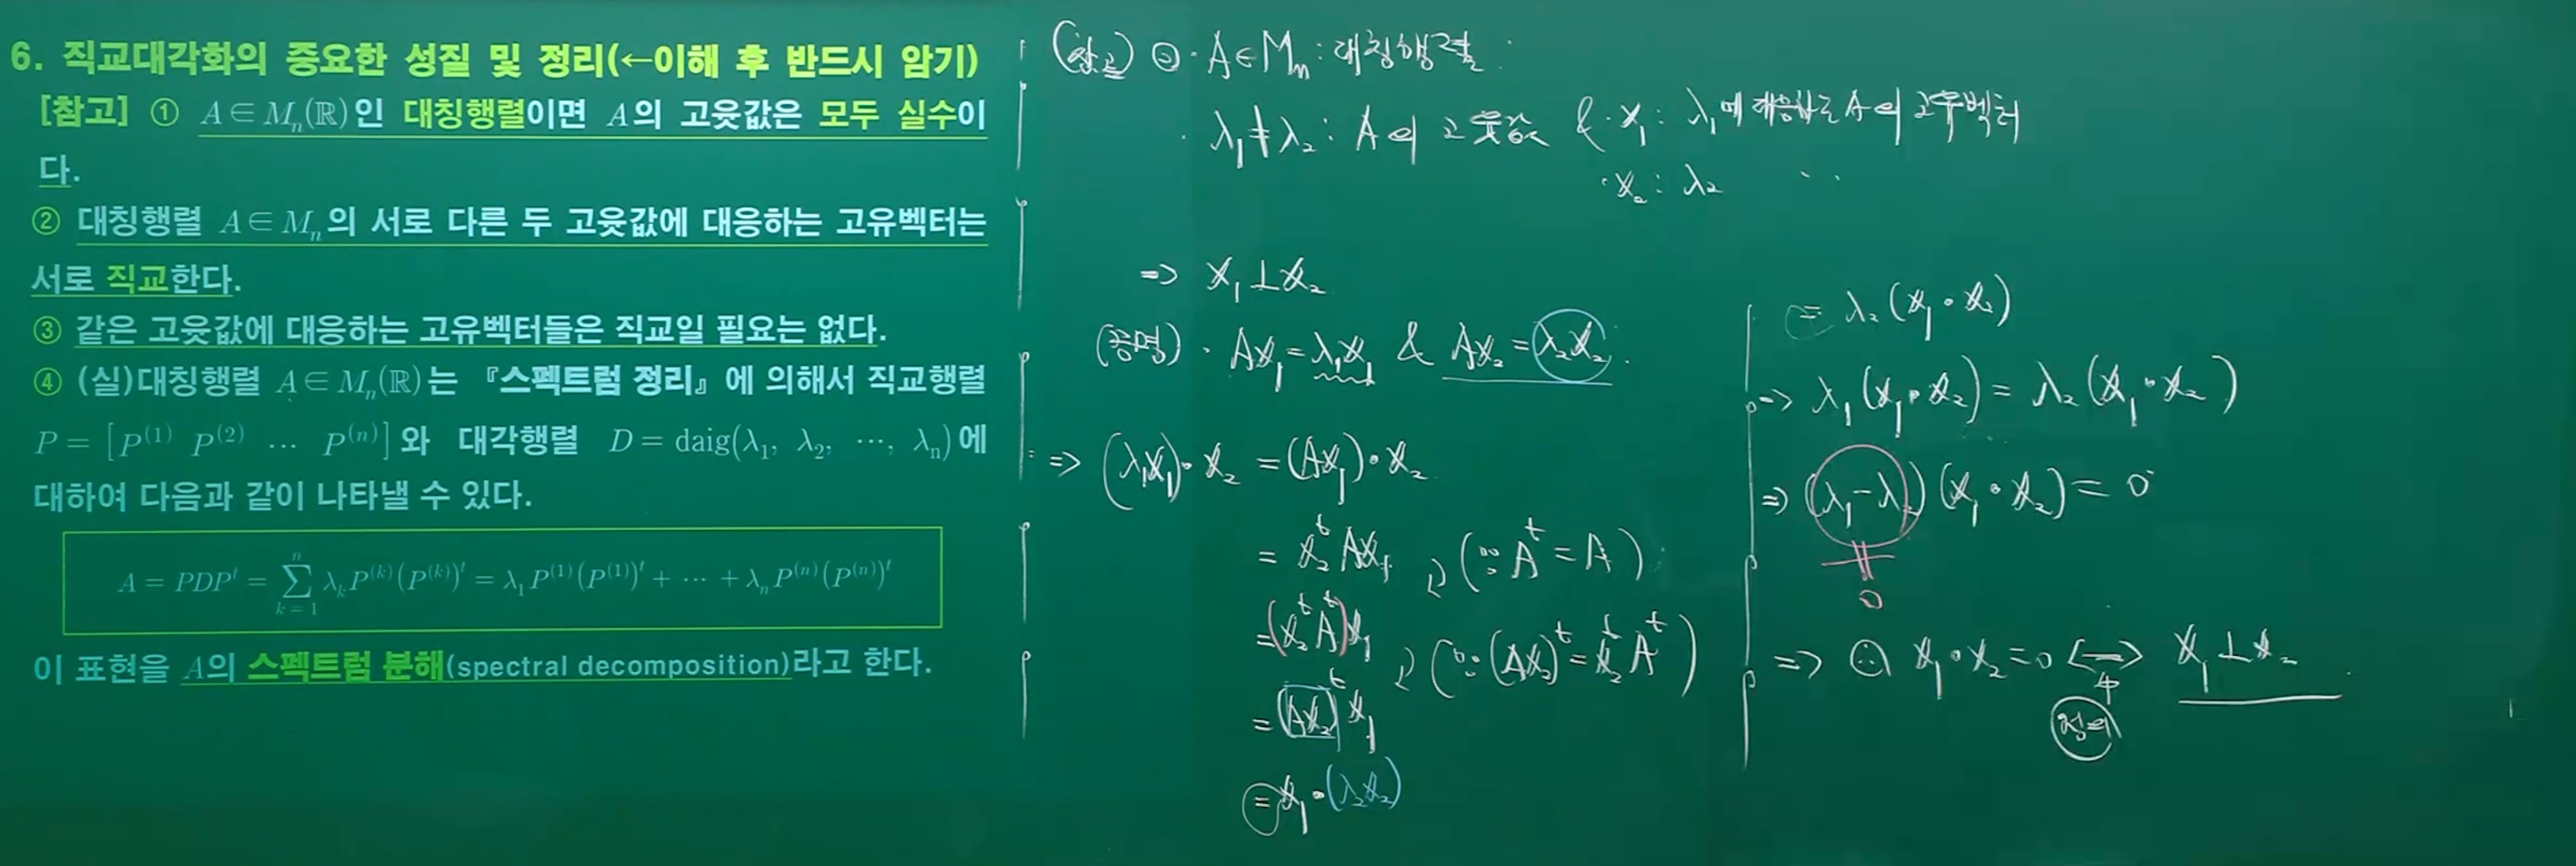 6. 직교대각화의 중요한 성질 및 정리(←이해 후 반드시 암기)
[참고] ① A∈Mₙ(ℝ)인 대칭행렬이면 A의 고윳값은 모두 실수이
다.
② 대칭행렬 A∈Mₙ의 서로 다른 두 고윳값에 대응하는 고유벡터는
서로 직교한다.
③ 같은 고윳값에 대응하는 고유벡터들은 직교일 필요는 없다.
④ (실)대칭행렬 A∈Mₙ(ℝ)는 『스펙트럼 정리』에 의해서 직교행렬
P = [P⁽¹⁾ P⁽²⁾ … P⁽ⁿ⁾]와 대각행렬 D = daig(λ₁, λ₂, …, λₙ)에
대하여 다음과 같이 나타낼 수 있다.
A = PDPᵗ = ∑ₖ₌₁ⁿ λₖP⁽ᵏ⁾(P⁽ᵏ⁾)ᵗ = λ₁P⁽¹⁾(P⁽¹⁾)ᵗ + … + λₙP⁽ⁿ⁾(P⁽ⁿ⁾)ᵗ
이 표현을 A의 스펙트럼 분해(spectral decomposition)라고 한다.
(참고) ② · A∈Mₙ : 대칭행렬
· λ₁≠λ₂ : A의 고윳값 & · x₁ : λ₁에 대응하는 A의 고유벡터
· x₂ : λ₂ ..
=> x₁⊥x₂
(증명) · Ax₁=λ₁x₁ & Ax₂=λ₂x₂.
=> (λ₁x₁)·x₂ = (Ax₁)·x₂
= x₂ᵗAx₁
(∵ Aᵗ=A)
= (x₂ᵗAᵗ)x₁
(∵ (Ax₂)ᵗ=x₂ᵗAᵗ)
= (Ax₂)ᵗx₁
= x₁·(λ₂x₂)
= λ₂(x₁·x₂)
=> λ₁(x₁·x₂) = λ₂(x₁·x₂)
=> (λ₁-λ₂)(x₁·x₂) = 0
≠
0
=> ∴ x₁·x₂=0 <=> x₁⊥x₂
정의